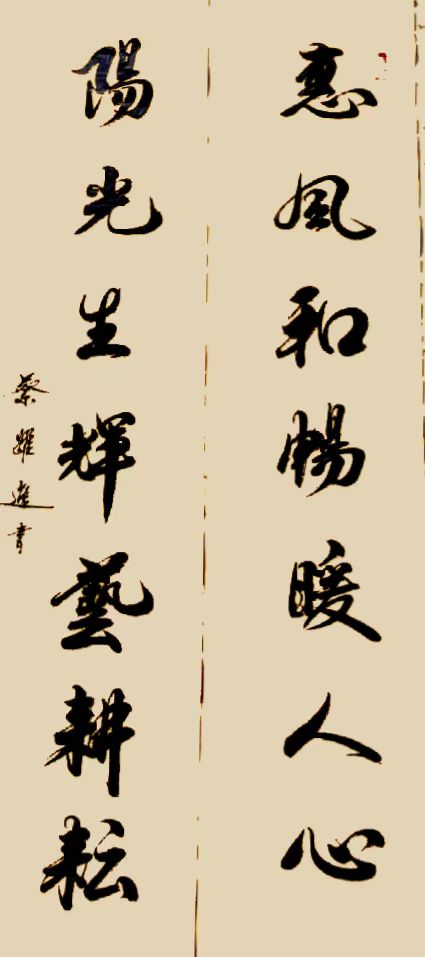 惠風和暢暖人心
陽光生輝藝耕耘
蔡躍進書